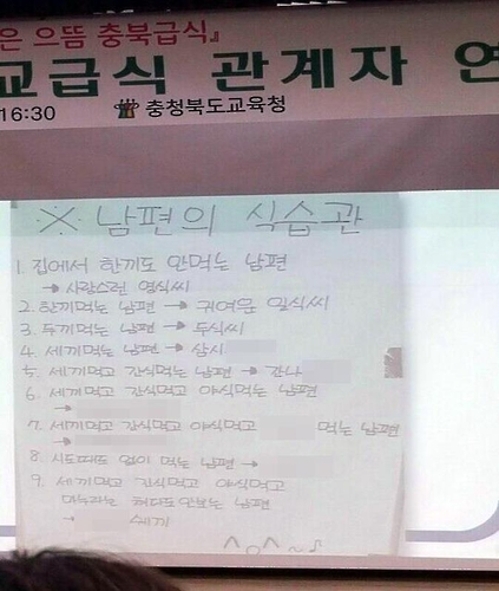 은 으뜸 충북급식』
교급식 관계자 연
16:30 충청북도교육청
※ 남편의 식습관
1. 집에서 한끼도 안먹는 남편
→ 사랑스런 영식씨
2. 한끼먹는 남편 → 귀여운 일식씨
3. 두끼먹는 남편 → 두식씨
4. 세끼먹는 남편 → 삼시
5. 세끼먹고 간식먹는 남편 → 간나
6. 세끼먹고 간식먹고 야식먹는 남편
→
7. 세끼먹고 간식먹고 야식먹고 먹는 남편
→
8. 시도때도 없이 먹는 남편 →
9. 세끼먹고 간식먹고 야식먹고
마누라는 쳐다도안보는 남편
→ 쉐끼
^o^~♪